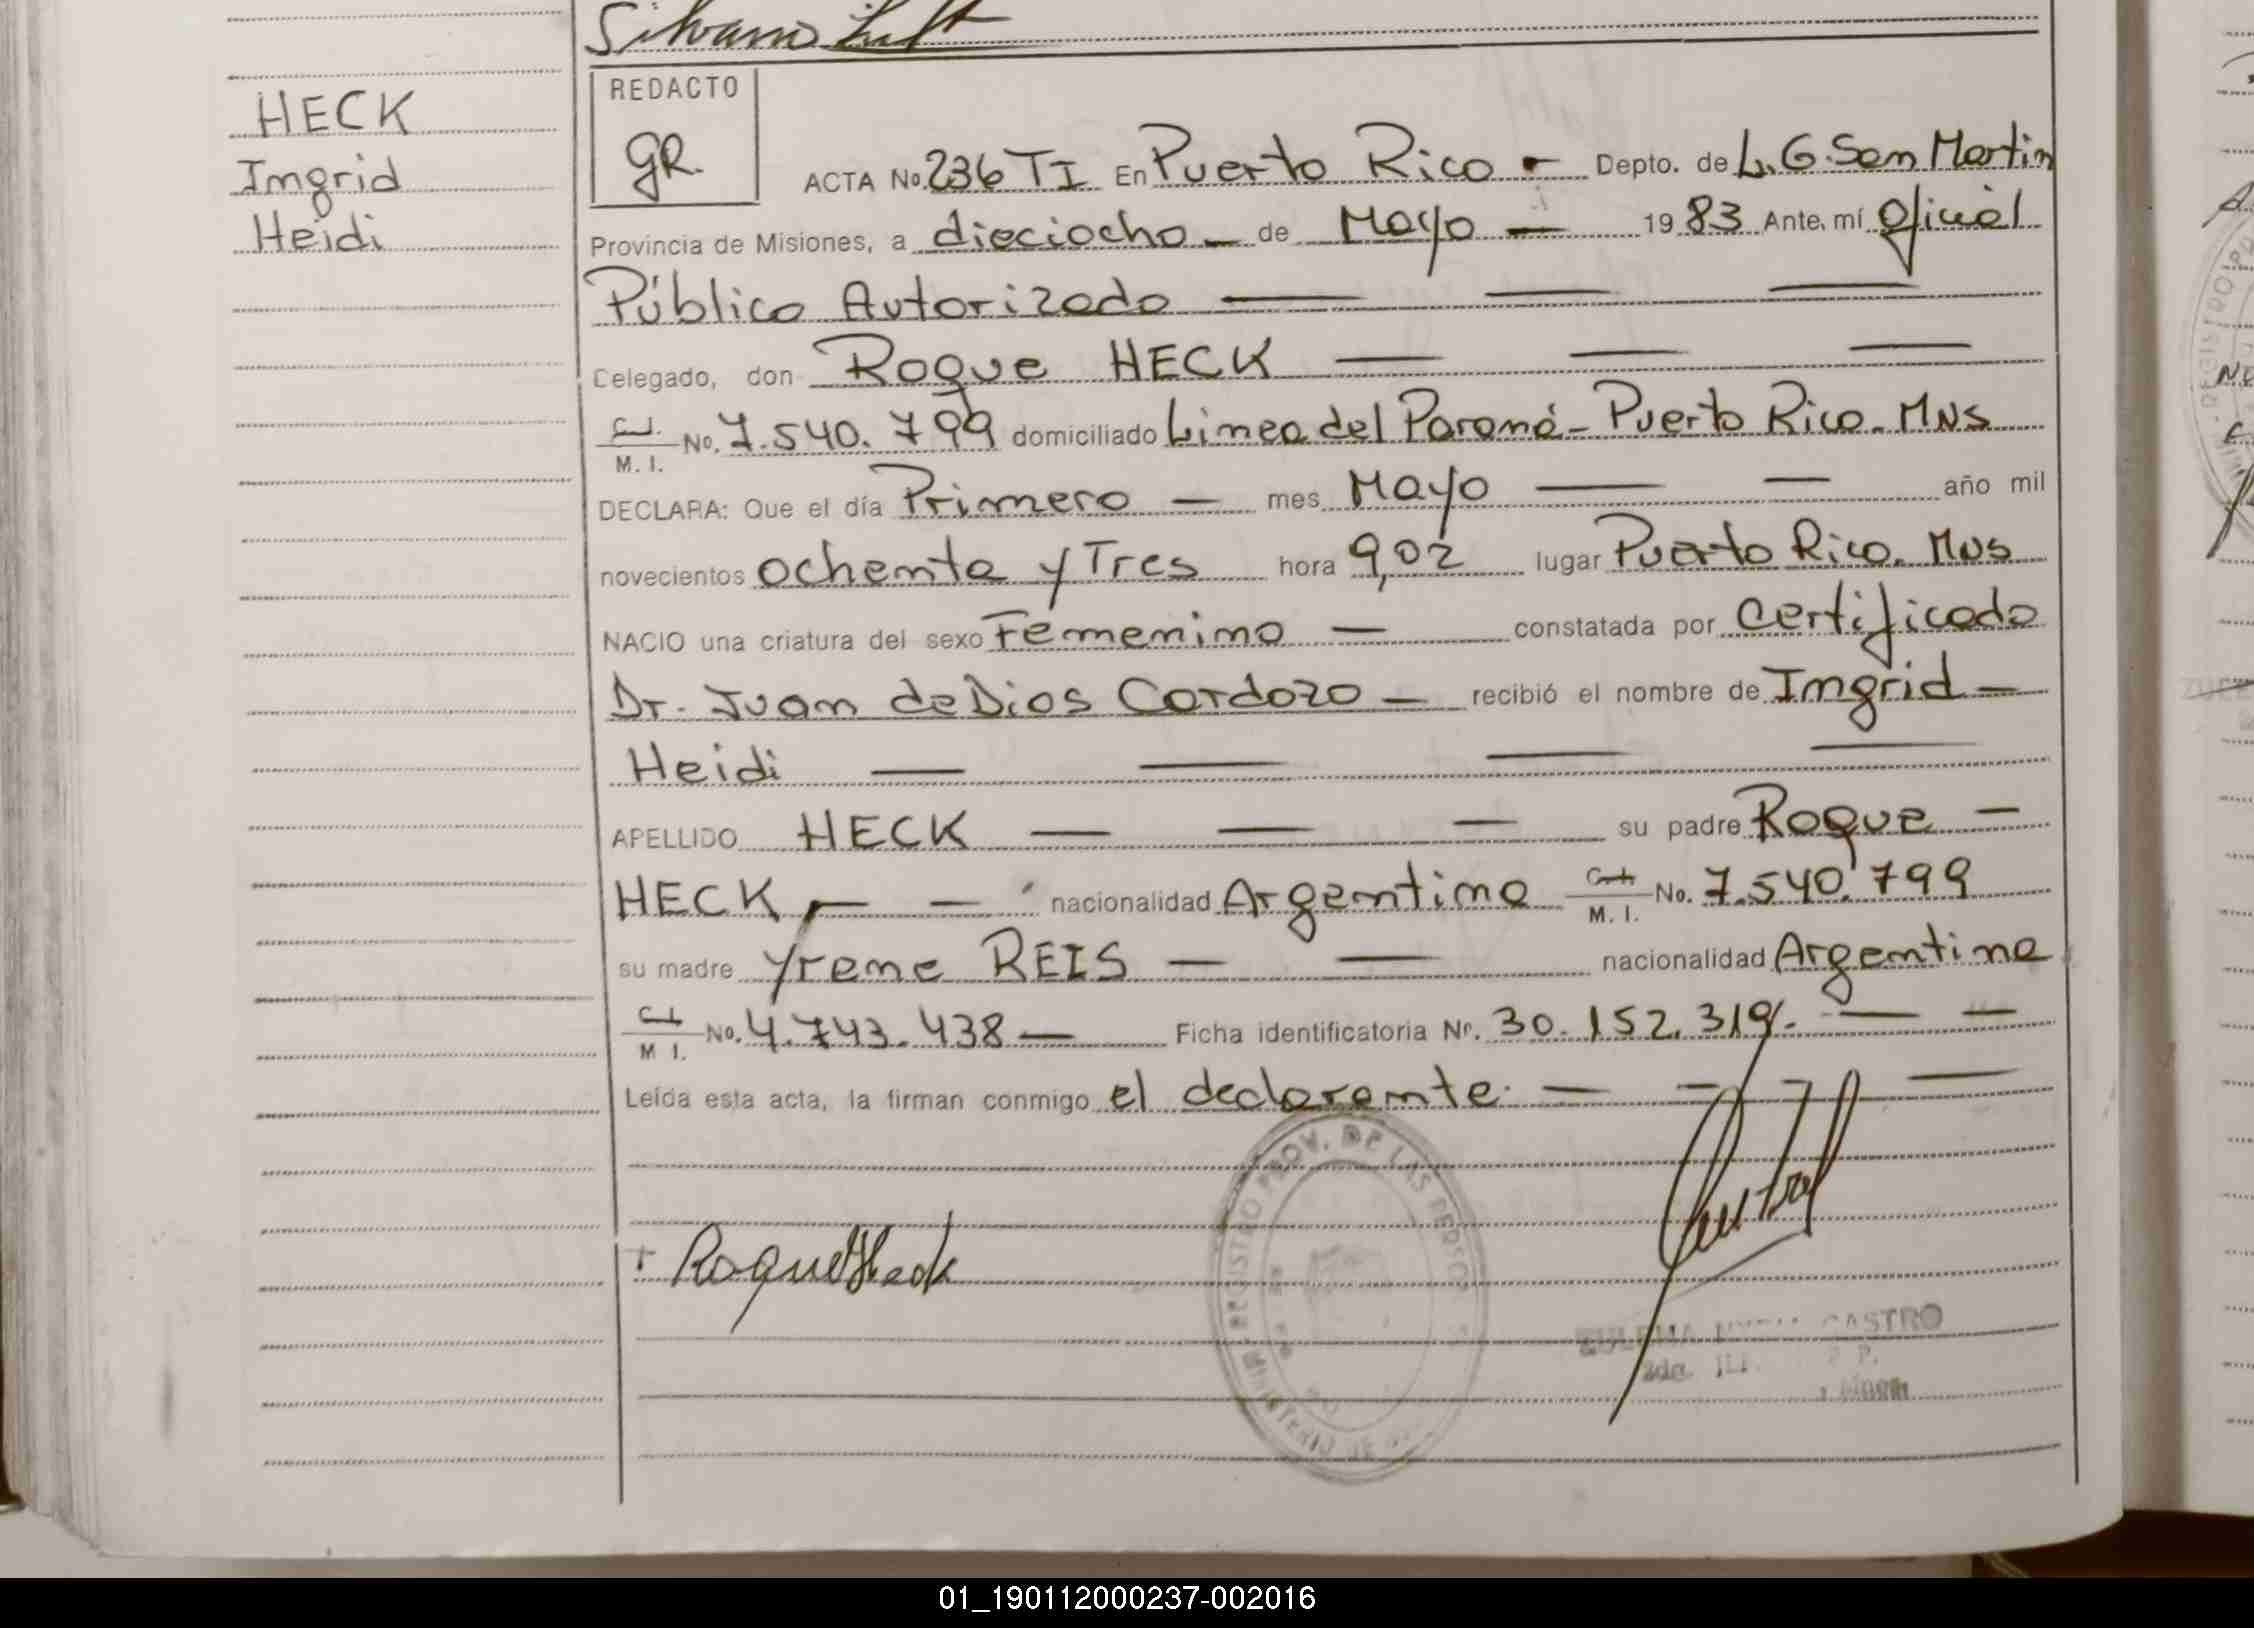 HECK
Ingrid
Heidi
REDACTO
GR.
ACTA No. 236 TI En Puerto Rico - Depto. de L. G. San Martin
Provincia de Misiones, a dieciocho - de Mayo - 1983 Ante, mí Oficial
Público Autorizado
Celegado, don Roque HECK
C.I. M. I. No. 7.540.799 domiciliado Linea del Paraná - Puerto Rico. MNS
DECLARA: Que el día Primero - mes Mayo año mil
novecientos ochenta y Tres hora 9,02 lugar Puerto Rico. MNS
NACIO una criatura del sexo Femenino - constatada por Certificado
Dr. Juan de Dios Cardozo - recibió el nombre de Ingrid -
Heidi
APELLIDO HECK su padre Roque -
HECK nacionalidad Argentino C.I. M. I. No. 7.540.799
su madre Yrene REIS - nacionalidad Argentina
C.I. M I. No. 4.743.438 - Ficha identificatoria Nº. 30.152.319.-
Leída esta acta, la firman conmigo el declarante.
REGISTRO PROV. DE LAS PERSO
MINISTERIO DE
Roque Heck
CASTRO
01_190112000237-002016